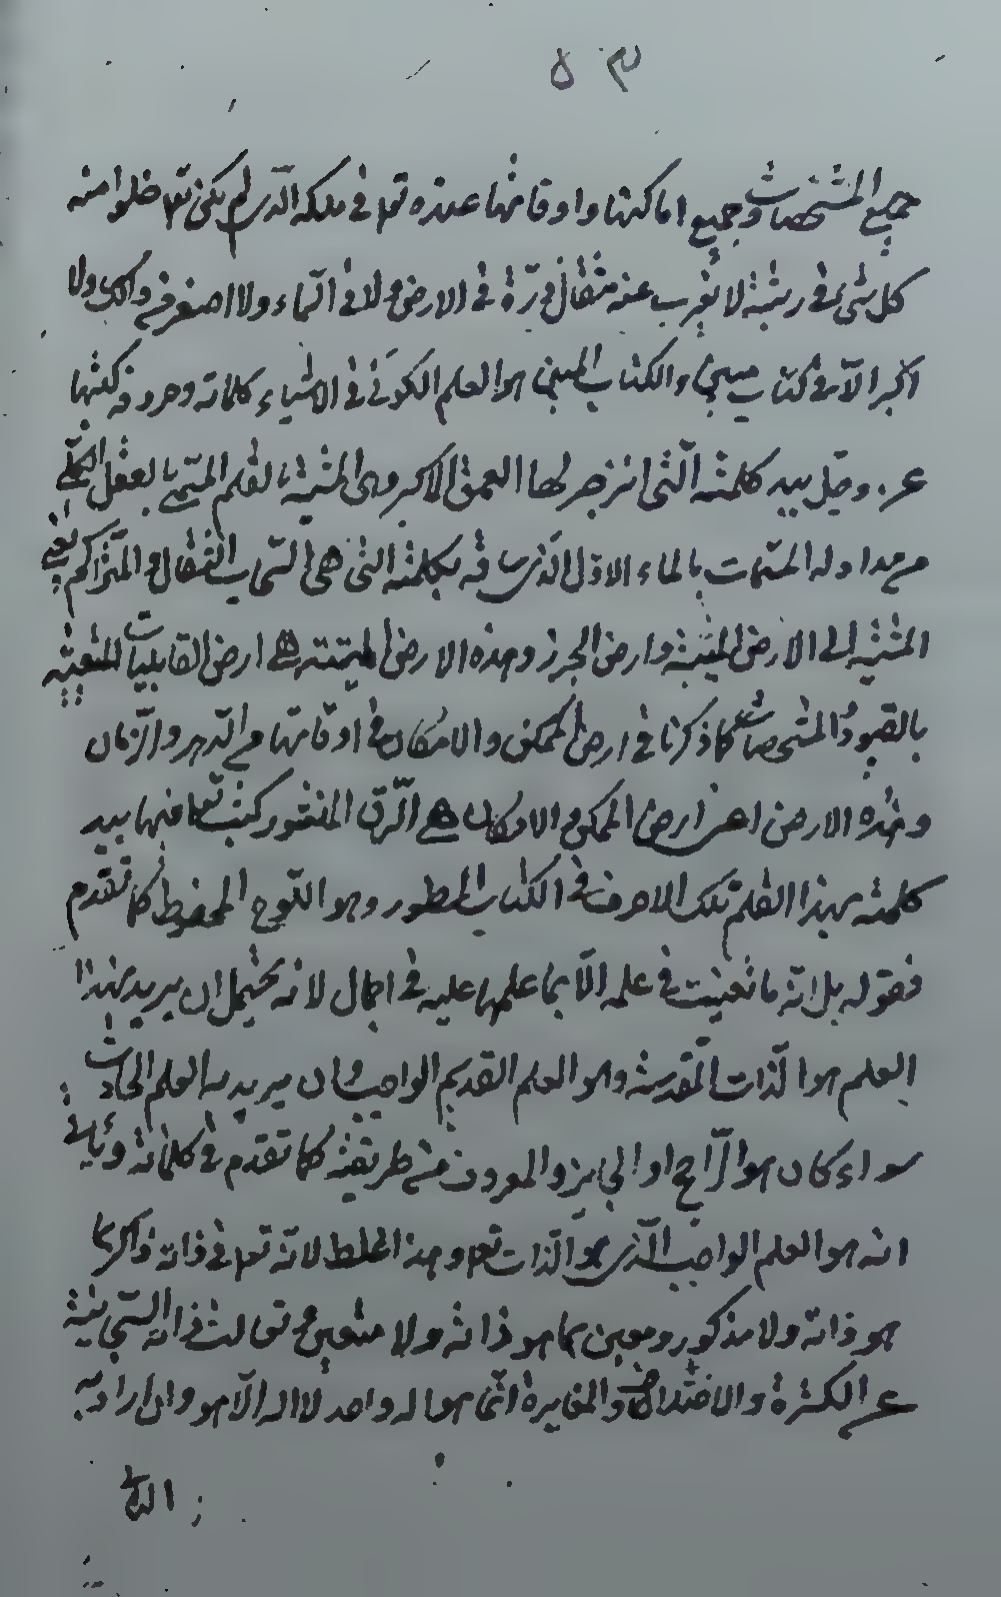 ٥٣
جميع المشخصات وجميع اماكنها واوقاتها عنده تع في ملكه الذى لم يكن تع خلوا منه
كل شئ في رتبته لا يعزب عنه مثقال ذرة في الارض ولا في السماء ولا اصغر من ذلك ولا
اكبر الا في كتاب مبين والكتاب المبين هو العلم الكونى فى الاشياء كلماته وحروفه كتبها
عز وجل بيد كلمته التى انزجر لها العمق الاكبر وهى المشية بالقلم المسمى بالعقل الكلى
من مداد له المسمات بالماء الاول الذى ساقه بكلمته التى هى السحاب الثقال والمتراكم يعنى
المشية الى الارض الميتة وارض الجرز وهذه الارض الميتة هي ارض القابليات المتعينة
بالقيود المشخصات كما ذكرنا في ارض الممكن والامكان في اوقاتها من الدهر والزمان
وهذه الارض اعنى ارض الممكن والامكان هي الرق المنشور كتب تع فيها بيد
كلمته بهذا القلم تلك الاحرف في الكتاب المسطور وهو اللوح المحفوظ كما تقدم
فقوله بل انه ما تعينت في علمه الا بما علمها عليه في اجمال لانه يحتمل ان يريد بهذا
العلم هو الذات المقدسة وهو العلم القديم الواجب وان يريد به العلم الحادث
سواء كان هو الراجح او الجايز والمعروف من طريقته كما تقدم في كلماته ويأتى
انه هو العلم الواجب الذى هو الذات تع وهذا غلط لانه تع في ذاته ذاكر بما
هو ذاته ولا مذكور ومعين بما هو ذاته ولا متعين وتعالت ذاته السبحانية
عن الكثرة والاختلاف والمغايرة انما هو اله واحد لا اله الا هو وان اراد به
الثانى